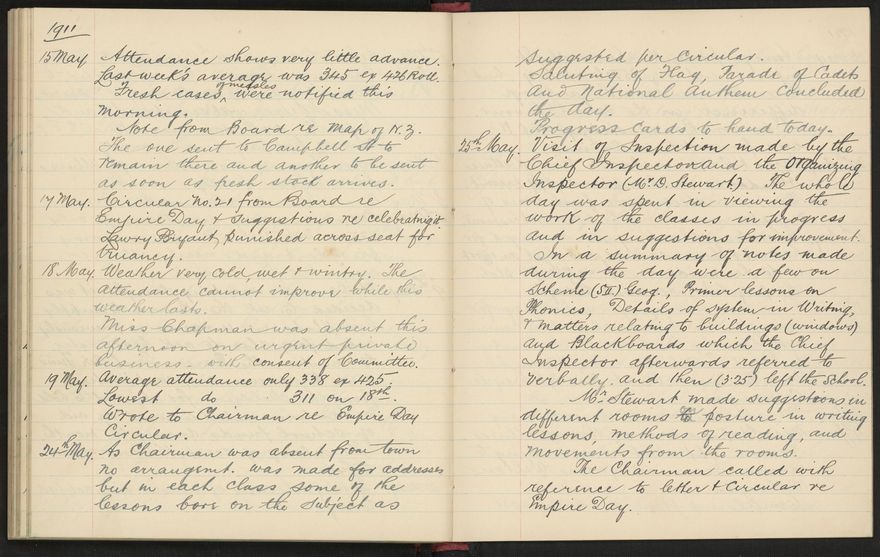 1911
15 May. Attendance shows very little advance.
Last week's average was 345 ex 426 Roll.
Fresh cases of measles were notified this
morning.
Note from Board re Map of N.Z.
The one sent to Campbell St to
remain there and another to be sent
as soon as fresh stock arrives.
17 May. Circular No. 21 from Board re
Empire Day & Suggestions re celebrating it
Lawry Bryant punished across seat for
truancy.
18 May. Weather very cold, wet & wintry. The
attendance cannot improve while this
weather lasts.
Miss Chapman was absent this
afternoon on urgent private
business with consent of Committee.
19 May. Average attendance only 338 ex 425.
Lowest do 311 on 18th.
Wrote to Chairman re Empire Day
Circular.
24th May. As Chairman was absent from town
no arrangemt. was made for addresses
but in each class some of the
lessons bore on the subject as
suggested per Circular.
Saluting of Flag, Parade of Cadets
and National Anthem concluded
the day.
Progress Cards to hand today.
25th May. Visit of Inspection made by the
Chief Inspector and the Organizing
Inspector (Mr. D. Stewart) The whole
day was spent in viewing the
work of the classes in progress
and in suggestions for improvement.
In a summary of notes made
during the day were a few on
Scheme (S II) Geog., Primer lessons on
Phonics, Details of System in Writing,
& matters relating to buildings (windows)
and Blackboards which the Chief
Inspector afterwards referred to
verbally. and then (3.25) left the School.
Mr. Stewart made suggestions in
different rooms posture in writing
lessons, methods of reading, and
movements from the rooms.
The Chairman called with
reference to letter & Circular re
Empire Day.